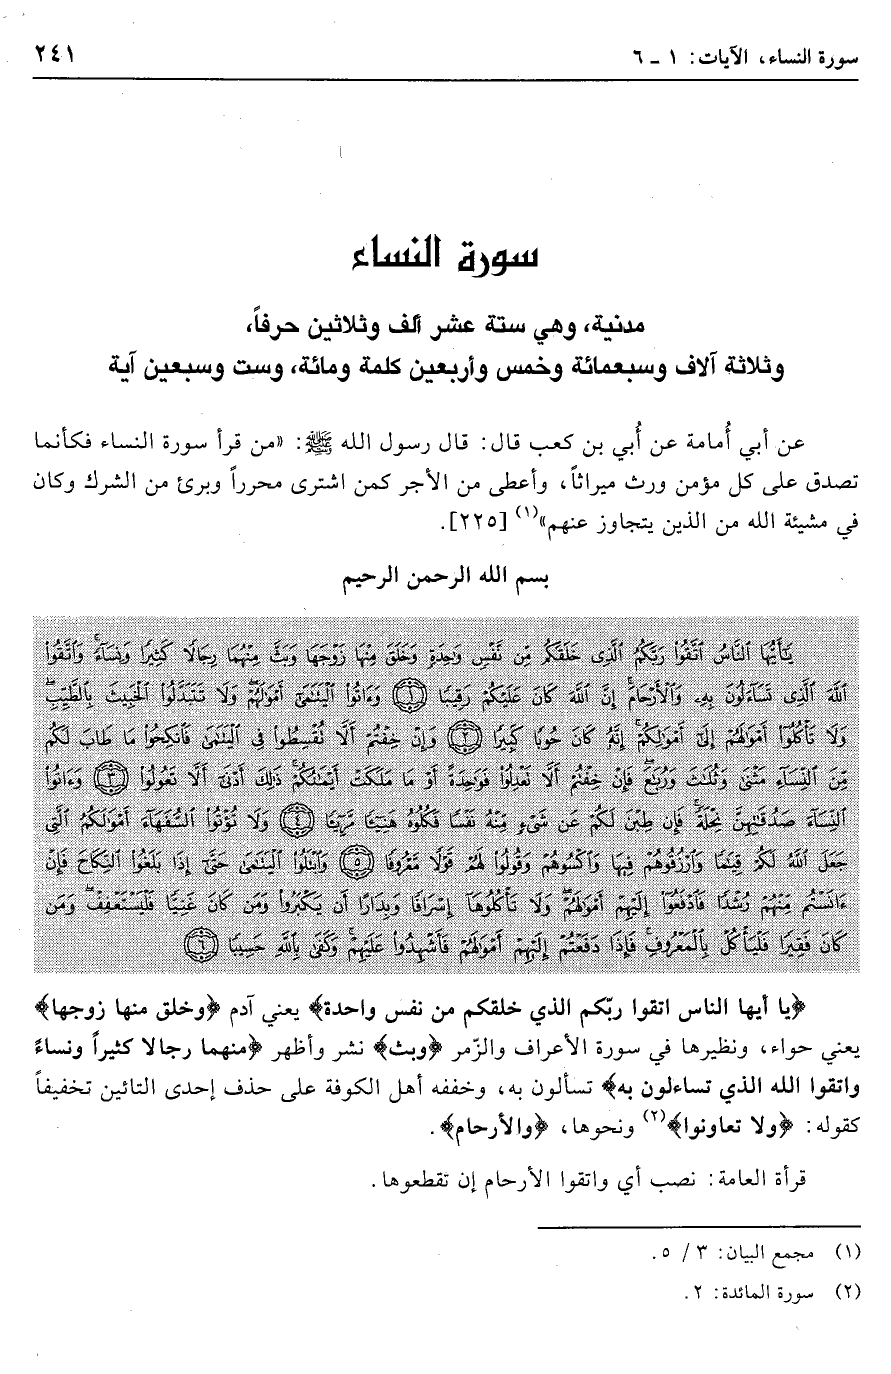 سورة النساء، الآيات: ١ ـ ٦
٢٤١
سورة النساء
مدنية، وهي ستة عشر ألف وثلاثين حرفاً،
وثلاثة آلاف وسبعمائة وخمس وأربعين كلمة ومائة، وست وسبعين آية
عن أبي أُمامة عن أُبي بن كعب قال: قال رسول الله ﷺ: «من قرأ سورة النساء فكأنما
تصدق على كل مؤمن ورث ميراثاً، وأعطى من الأجر كمن اشترى محرراً وبرئ من الشرك وكان
في مشيئة الله من الذين يتجاوز عنهم»(١) [٢٢٥].
بسم الله الرحمن الرحيم
يَٰٓأَيُّهَا ٱلنَّاسُ ٱتَّقُوا۟ رَبَّكُمُ ٱلَّذِى خَلَقَكُم مِّن نَّفْسٍ وَٰحِدَةٍ وَخَلَقَ مِنْهَا زَوْجَهَا وَبَثَّ مِنْهُمَا رِجَالًا كَثِيرًا وَنِسَآءً ۚ وَٱتَّقُوا۟
ٱللَّهَ ٱلَّذِى تَسَآءَلُونَ بِهِۦ وَٱلْأَرْحَامَ ۚ إِنَّ ٱللَّهَ كَانَ عَلَيْكُمْ رَقِيبًا ﴿١﴾ وَءَاتُوا۟ ٱلْيَتَٰمَىٰٓ أَمْوَٰلَهُمْ ۖ وَلَا تَتَبَدَّلُوا۟ ٱلْخَبِيثَ بِٱلطَّيِّبِ ۖ
وَلَا تَأْكُلُوٓا۟ أَمْوَٰلَهُمْ إِلَىٰٓ أَمْوَٰلِكُمْ ۚ إِنَّهُۥ كَانَ حُوبًا كَبِيرًا ﴿٢﴾ وَإِنْ خِفْتُمْ أَلَّا تُقْسِطُوا۟ فِى ٱلْيَتَٰمَىٰ فَٱنكِحُوا۟ مَا طَابَ لَكُم
مِّنَ ٱلنِّسَآءِ مَثْنَىٰ وَثُلَٰثَ وَرُبَٰعَ ۖ فَإِنْ خِفْتُمْ أَلَّا تَعْدِلُوا۟ فَوَٰحِدَةً أَوْ مَا مَلَكَتْ أَيْمَٰنُكُمْ ۚ ذَٰلِكَ أَدْنَىٰٓ أَلَّا تَعُولُوا۟ ﴿٣﴾ وَءَاتُوا۟
ٱلنِّسَآءَ صَدُقَٰتِهِنَّ نِحْلَةً ۚ فَإِن طِبْنَ لَكُمْ عَن شَىْءٍ مِّنْهُ نَفْسًا فَكُلُوهُ هَنِيٓـًٔا مَّرِيٓـًٔا ﴿٤﴾ وَلَا تُؤْتُوا۟ ٱلسُّفَهَآءَ أَمْوَٰلَكُمُ ٱلَّتِى
جَعَلَ ٱللَّهُ لَكُمْ قِيَٰمًا وَٱرْزُقُوهُمْ فِيهَا وَٱكْسُوهُمْ وَقُولُوا۟ لَهُمْ قَوْلًا مَّعْرُوفًا ﴿٥﴾ وَٱبْتَلُوا۟ ٱلْيَتَٰمَىٰ حَتَّىٰٓ إِذَا بَلَغُوا۟ ٱلنِّكَاحَ فَإِنْ
ءَانَسْتُم مِّنْهُمْ رُشْدًا فَٱدْفَعُوٓا۟ إِلَيْهِمْ أَمْوَٰلَهُمْ ۖ وَلَا تَأْكُلُوهَآ إِسْرَافًا وَبِدَارًا أَن يَكْبَرُوا۟ ۚ وَمَن كَانَ غَنِيًّا فَلْيَسْتَعْفِفْ ۖ وَمَن
كَانَ فَقِيرًا فَلْيَأْكُلْ بِٱلْمَعْرُوفِ ۚ فَإِذَا دَفَعْتُمْ إِلَيْهِمْ أَمْوَٰلَهُمْ فَأَشْهِدُوا۟ عَلَيْهِمْ ۚ وَكَفَىٰ بِٱللَّهِ حَسِيبًا ﴿٦﴾
﴿يا أيها الناس اتقوا ربّكم الذي خلقكم من نفس واحدة﴾ يعني آدم ﴿وخلق منها زوجها﴾
يعني حواء، ونظيرها في سورة الأعراف والزّمر ﴿وبث﴾ نشر وأظهر ﴿منهما رجالا كثيراً ونساءً
واتقوا الله الذي تساءلون به﴾ تسألون به، وخففه أهل الكوفة على حذف إحدى التائين تخفيفاً
كقوله: ﴿ولا تعاونوا﴾(٢) ونحوها، ﴿والأرحام﴾.
قرأة العامة: نصب أي واتقوا الأرحام إن تقطعوها.
(١) مجمع البيان: ٣ / ٥.
(٢) سورة المائدة: ٢.